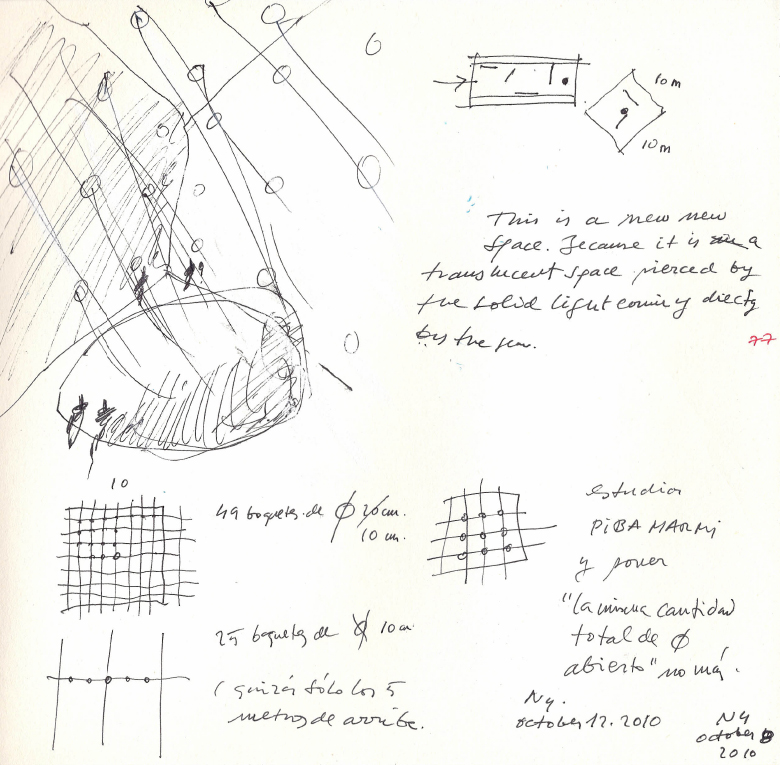 10 m
10 m
This is a new new
space. Because it is a
translucent space pierced by
the solid light coming directly
by the sun.
77
10
49 boquetes de ϕ 10 cm.
10 cm.
25 boquetes de ϕ 10 cm
(quizás sólo los 5
metros de arriba.
estudiar
PIBAMARMI
y poner
"la misma cantidad
total de ϕ
abierto" no más.
NY.
october 12. 2010
NY
october
2010